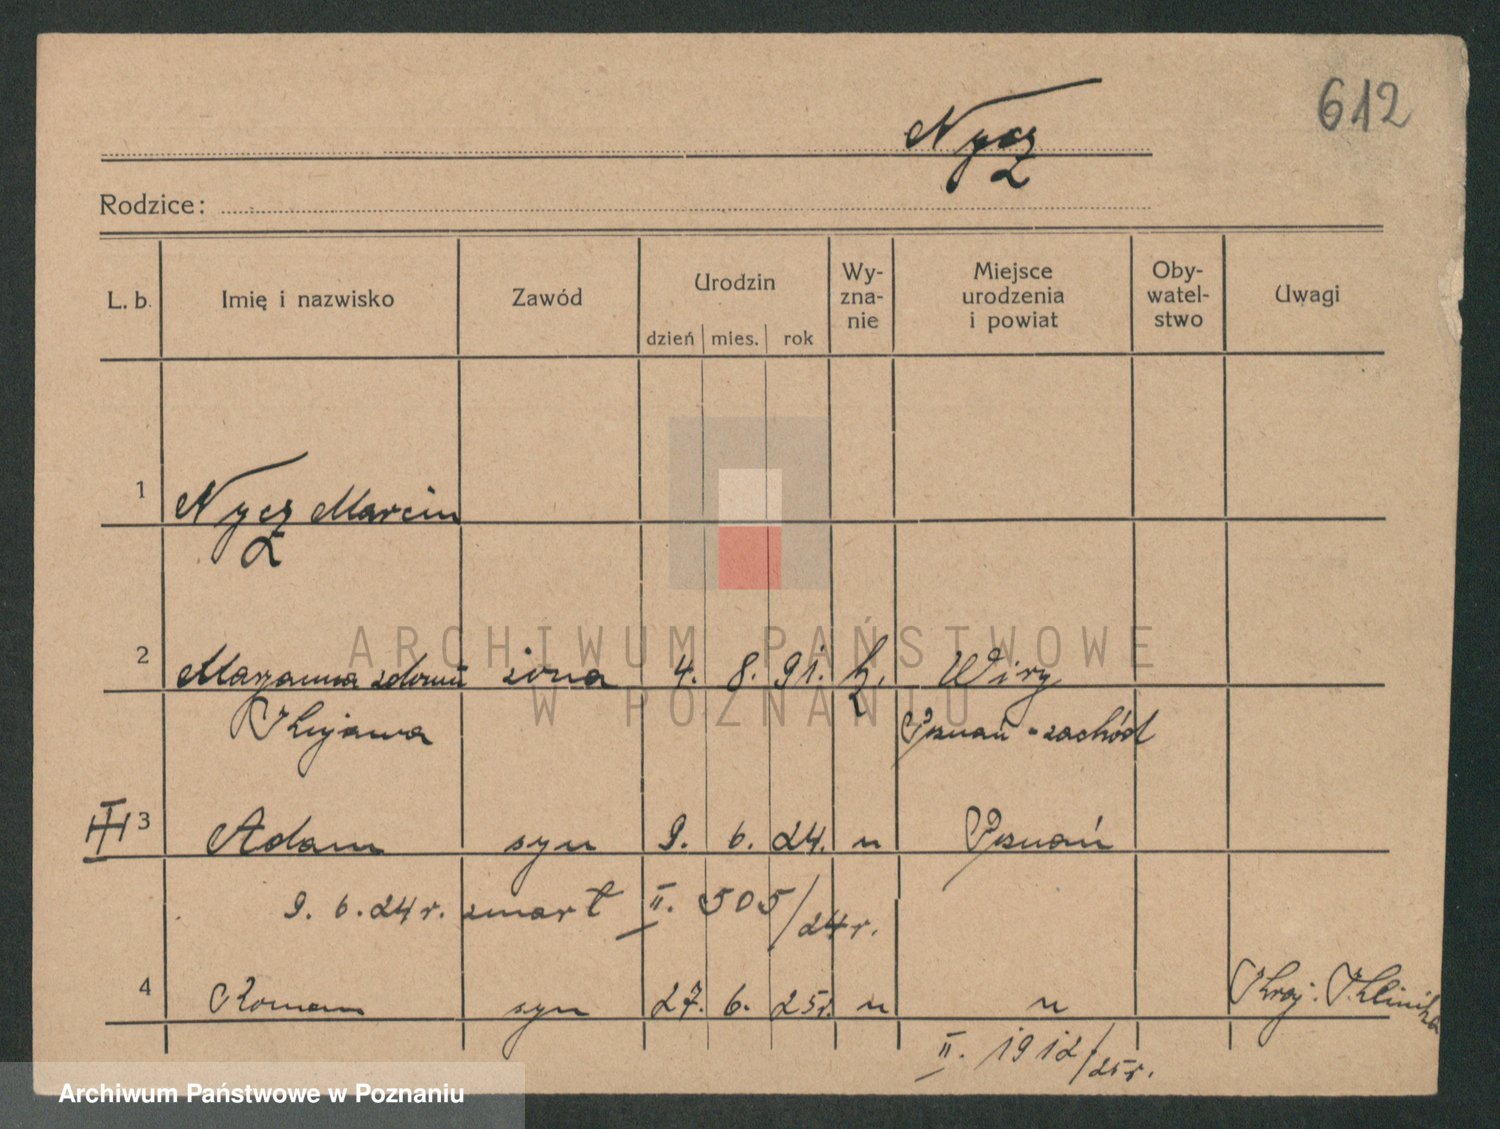 612
Nycz
Rodzice:
L. b. Imię i nazwisko Zawód Urodzin dzień mies. rok Wy-zna-nie Miejsce urodzenia i powiat Oby-watel-stwo Uwagi
1 Nycz Marcin
2 Maryanna zdomu żona 4. 8. 91. k. Wiry
Kujawa Poznań - zachód
III 3 Adam syn 9. 6. 24. " Poznań
9. 6. 24 r. zmarł II. 505/24 r.
4 Roman syn 27. 6. 25r. " " Kraj. Klinika
II. 1912/25r.
ARCHIWUM PAŃSTWOWE
W POZNANIU
Archiwum Państwowe w Poznaniu